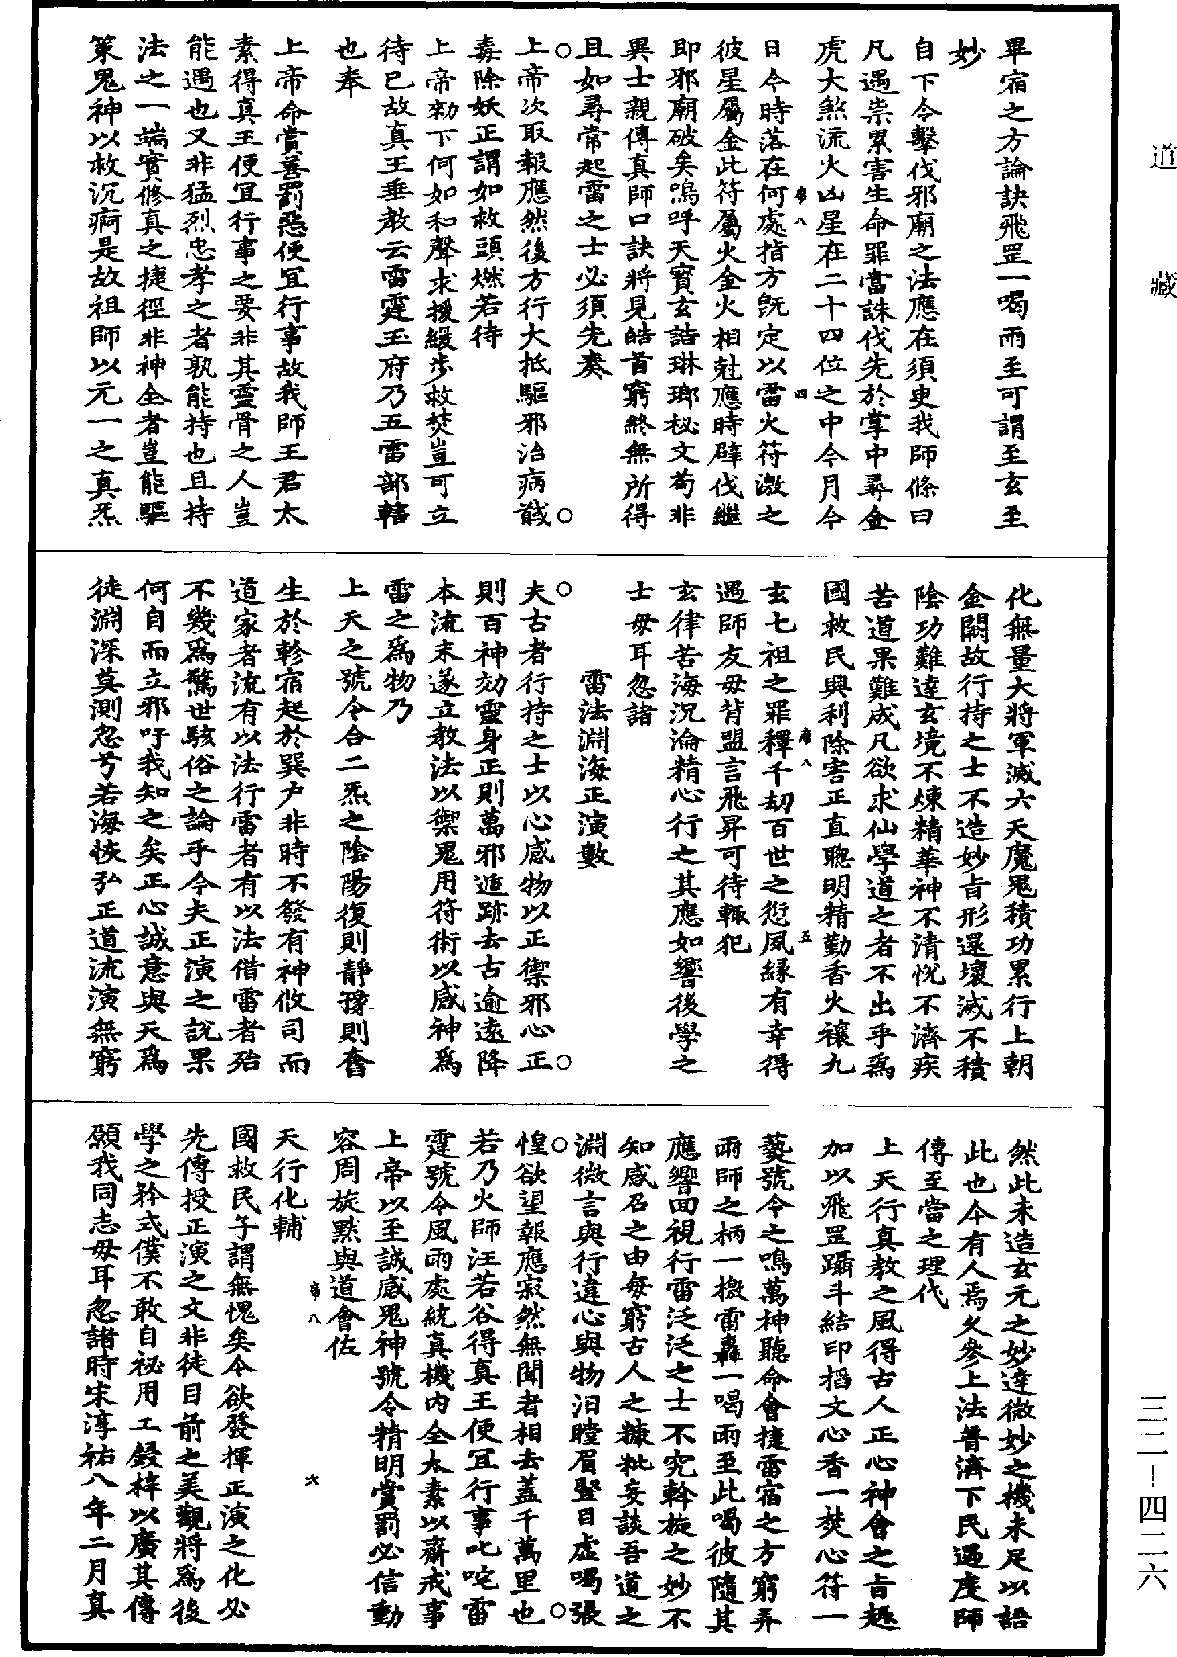 道藏
畢宿之方論訣飛罡一喝雨至可謂至玄至
妙
自下令擊伐邪廟之法應在須臾我師條曰
凡遇祟累害生命罪當誅伐先於掌中尋金
虎大煞流火凶星在二十四位之中今月今
日今時落在何處指方旣定以雷火符激之
席八
四
彼星屬金此符屬火金火相尅應時辟伐繼
即邪廟破矣嗚呼天寶玄誥琳瑯秘文苟非
異士親傳真師口訣將見皓首窮終無所得
且如尋常起雷之士必須先奏
上帝次取報應然後方行大抵驅邪治病戩
毒除妖正謂如救頭燃若待
上帝勑下何如和聲求援緩步救焚豈可立
待已故真王垂敎云雷霆玉府乃五雷部轄
也奉
上帝命賞善罰惡便宜行事故我師王君太
素得真王便宜行事之要非其靈骨之人豈
能遇也又非猛烈忠孝之者孰能持也且持
法之一端實修真之捷徑非神全者豈能驅
策鬼神以救沉痾是故祖師以元一之真炁
化無量大將軍滅六天魔鬼積功累行上朝
金闕故行持之士不造妙旨形還壞滅不積
陰功難達玄境不煉精華神不清悅不濟疾
苦道果難成凡欲求仙學道之者不出乎爲
國救民興利除害正直聰明精勤香火禳九
席八
五
玄七祖之罪釋千劫百世之愆夙緣有幸得
遇師友毋背盟言飛昇可待輒犯
玄律苦海沉淪精心行之其應如響後學之
士毋耳忽諸
雷法淵海正演數
夫古者行持之士以心感物以正禦邪心正
則百神効靈身正則萬邪遁跡去古逾遠降
本流末遂立教法以禦鬼用符術以感神爲
雷之爲物乃
上天之號令合二炁之陰陽復則靜豫則奮
生於軫宿起於巽户非時不發有神攸司而
道家者流有以法行雷者有以法借雷者殆
不幾爲驚世駭俗之論乎今夫正演之說果
何自而立邪吁我知之矣正心誠意與天爲
徒淵深莫測忽兮若海恢弘正道流演無窮
然此未造玄元之妙達微妙之機未足以語
此也今有人焉久參上法普濟下民過度師
傳至當之理代
上天行真敎之風得古人正心神會之旨趣
加以飛罡躡斗結印搯文心香一焚心符一
爇號令之鳴萬神聽命會捷雷宿之方窮弄
雨師之柄一檄雷轟一喝雨至此喝彼隨其
應響回視行雷泛泛之士不究斡旋之妙不
知感召之由每窮古人之糠粃妄談吾道之
淵微言與行違心與物汨瞠眉竪目虛喝張
惶欲望報應寂然無聞者相去蓋千萬里也
若乃火師汪若谷得真王便宜行事叱咤雷
霆號令風雨處統真機内全太素以齋戒事
上帝以至誠感鬼神號令精明賞罰必信動
容周旋默與道會佐
席八
六
天行化輔
國救民予謂無愧矣今欲發揮正演之化必
先傳授正演之文非徒目前之美觀將爲後
學之矜式僕不敢自祕用工鋟梓以廣其傳
願我同志毋耳忽諸時宋淳祐八年二月真
三二－四二六